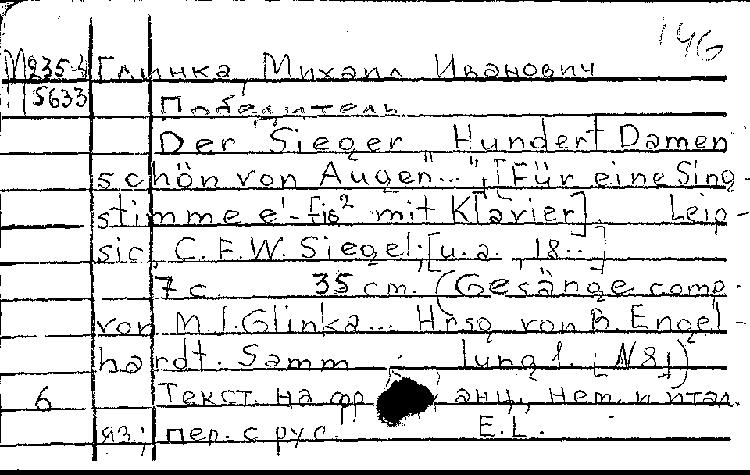 146
М235-4 Глинка, Михаил Иванович
15633 Победитель
Der Sieger „Hundert Damen
schön von Augen...", [Für eine Sing-
stimme e'-fis² mit Klavier]. Leip-
sic, C.F.W. Siegel, [u.a., 18..]
7 с. 35 cm. (Gesänge comp.
von M.I. Glinka... Hrsg von B. Engel-
hardt. Samm lung 1. [N 8])
6 Текст. на фр анц., нем. и итал.
яз; пер. с рус. E.L.